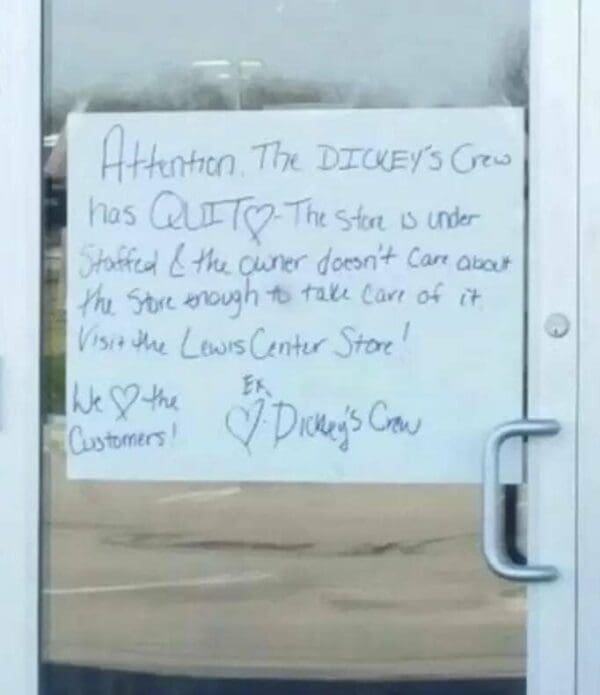 Attention. The DICKEY'S Crew
has QUIT♡- The store is under
Staffed & the owner doesn't care about
the store enough to take care of it.
Visit the Lewis Center Store!
We ♡ the
Customers!
Ex
♡- Dickey's Crew